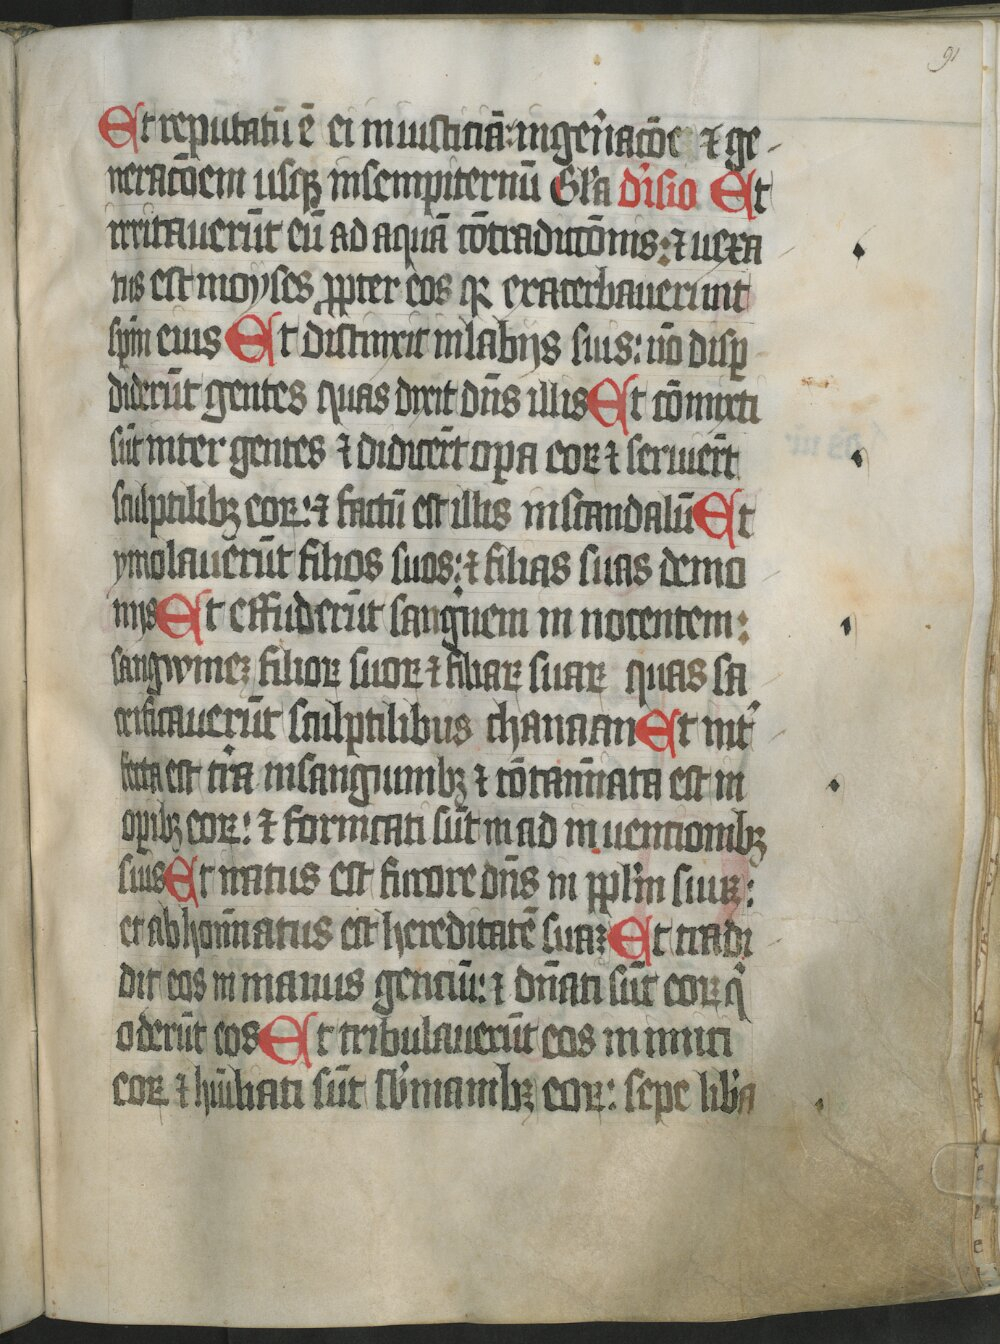 91
Et reputatū ē ei in iusticiā: in gen̄acōe ⁊ ge
neracōem usqꝫ in sempiternū Gl̄a diuisio Et
irritauerūt eū ad aquā cōtradictōnis: ⁊ uexa
tus est moyses ꝓpter eos qꝛ exacerbauerunt
sp̄m eius Et distinxit in labijs suis: nō disꝑ
diderūt gentes quas dixit dn̄s illis Et cōmixti
sūt inter gentes ⁊ didicer̄t oꝑa eoꝝ ⁊ seruier̄t
sculptilibꝫ eoꝝ: ⁊ factū est illis in scandalū Et
ymolauerūt filios suos: ⁊ filias suas demo
nijs Et effuderūt sangiuem innocentem:
sangwinēꝫ filioꝝ suoꝝ ⁊ filiaꝝ suaꝝ quas sa
crificauerūt sculptilibus chanaan Et int̄
fecta est tr̄a in sanguinibꝫ ⁊ cōtamīata est in
oꝑibꝫ eoꝝ: ⁊ fornicati sūt in ad inuencionibꝫ
suis Et iratus est furore dn̄s in ppl̄m suuꝫ:
et abhomīatus est hereditatē suaꝫ Et tradi
dit eos in manus genciū: ⁊ dn̄ati sūt eoꝝ q̄
oderūt eos Et tribulauerūt eos inimici
eoꝝ ⁊ hūiliati sūt sb̄ manibꝫ eoꝝ: sepe lib̄a